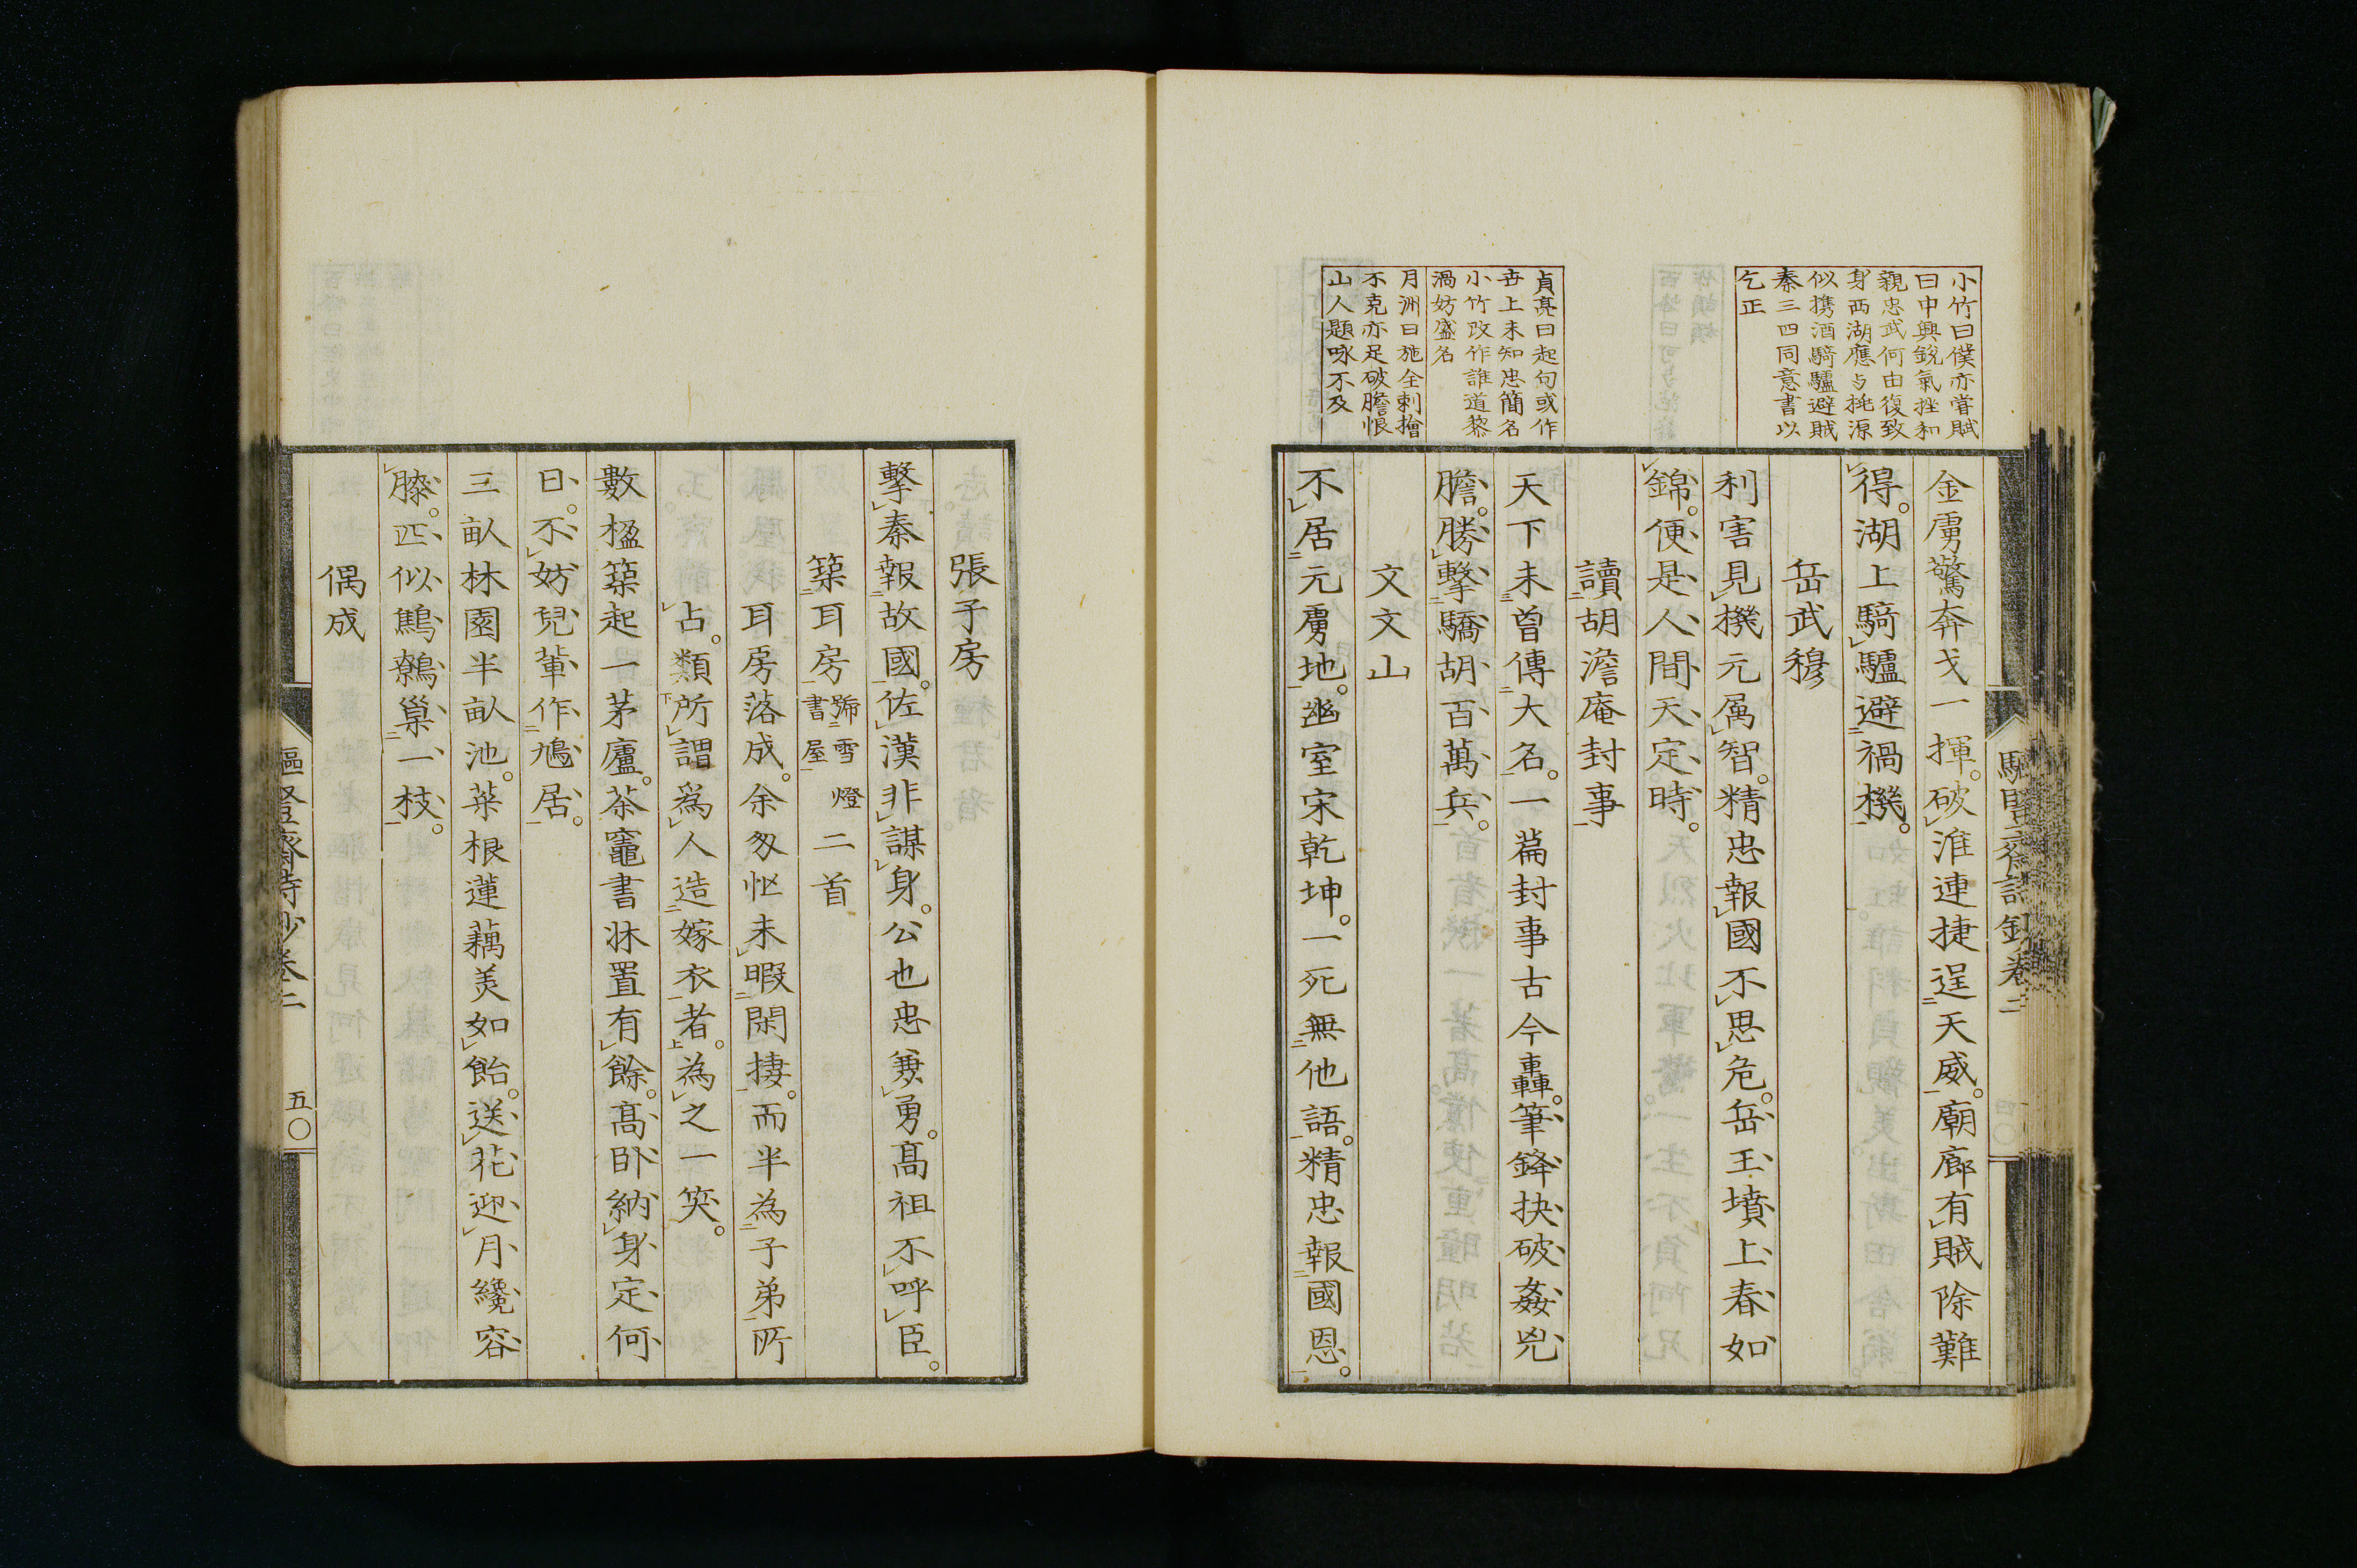 小竹曰僕亦嘗賦
曰中興銳氣挫和
親忠武何由復致
身西湖應与桃源
似携酒騎驢避賊
秦三四同意書以
乞正
貞亮曰起句或作
世上未知忠簡名
小竹改作誰道黎
渦妨盛名
月洲曰施全刺檜
不克亦足破膽恨
山人題咏不及
金虜驚奔戈一揮。破淮連捷逞天威。廟廊有賊除難
得。湖上騎驢避禍機。
岳武穆
利害見機元属智。精忠報國不思危。岳王墳上春如
錦。便是人間天定時。
讀胡澹庵封事
天下未曽傳大名。一篇封事古今轟。筆鋒抉破姦兇
膽。勝擊驕胡百萬兵。
文文山
不居元虜地。幽室宋乾坤。一死無他語。精忠報國恩。
張子房
擊秦報故國。佐漢非謀身。公也忠兼勇。髙祖不呼臣。
築耳房號雪燈書屋二首
耳房落成。余匆忙未暇閑捿。而半為子弟所
占。類所謂爲人造嫁衣者。為之一笑。
數楹築起一茅廬。茶竈書牀置有餘。髙卧納身定何
日。不妨兒輩作鳩居。
三畝林園半畝池。菜根蓮藕美如飴。送花迎月纔容
膝。匹似鷦鷯巢一枝。
偶成
五〇